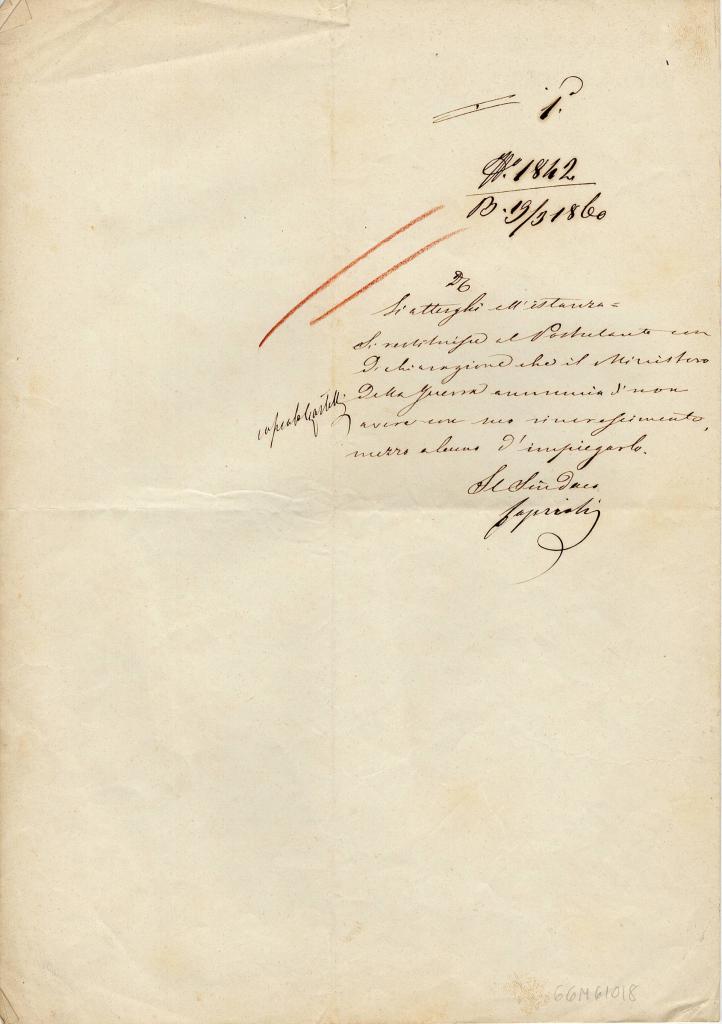 1.°
N.° 1842
B. 19/3 1860
Si atterghi all'istanza=
Si restituisce al Postulante con
Dichiarazione che il Ministero
Della Guerra annuncia di non
avere con suo rincrescimento,
mezzo alcuno d'impiegarlo.
Il Sindaco
GGMG1018